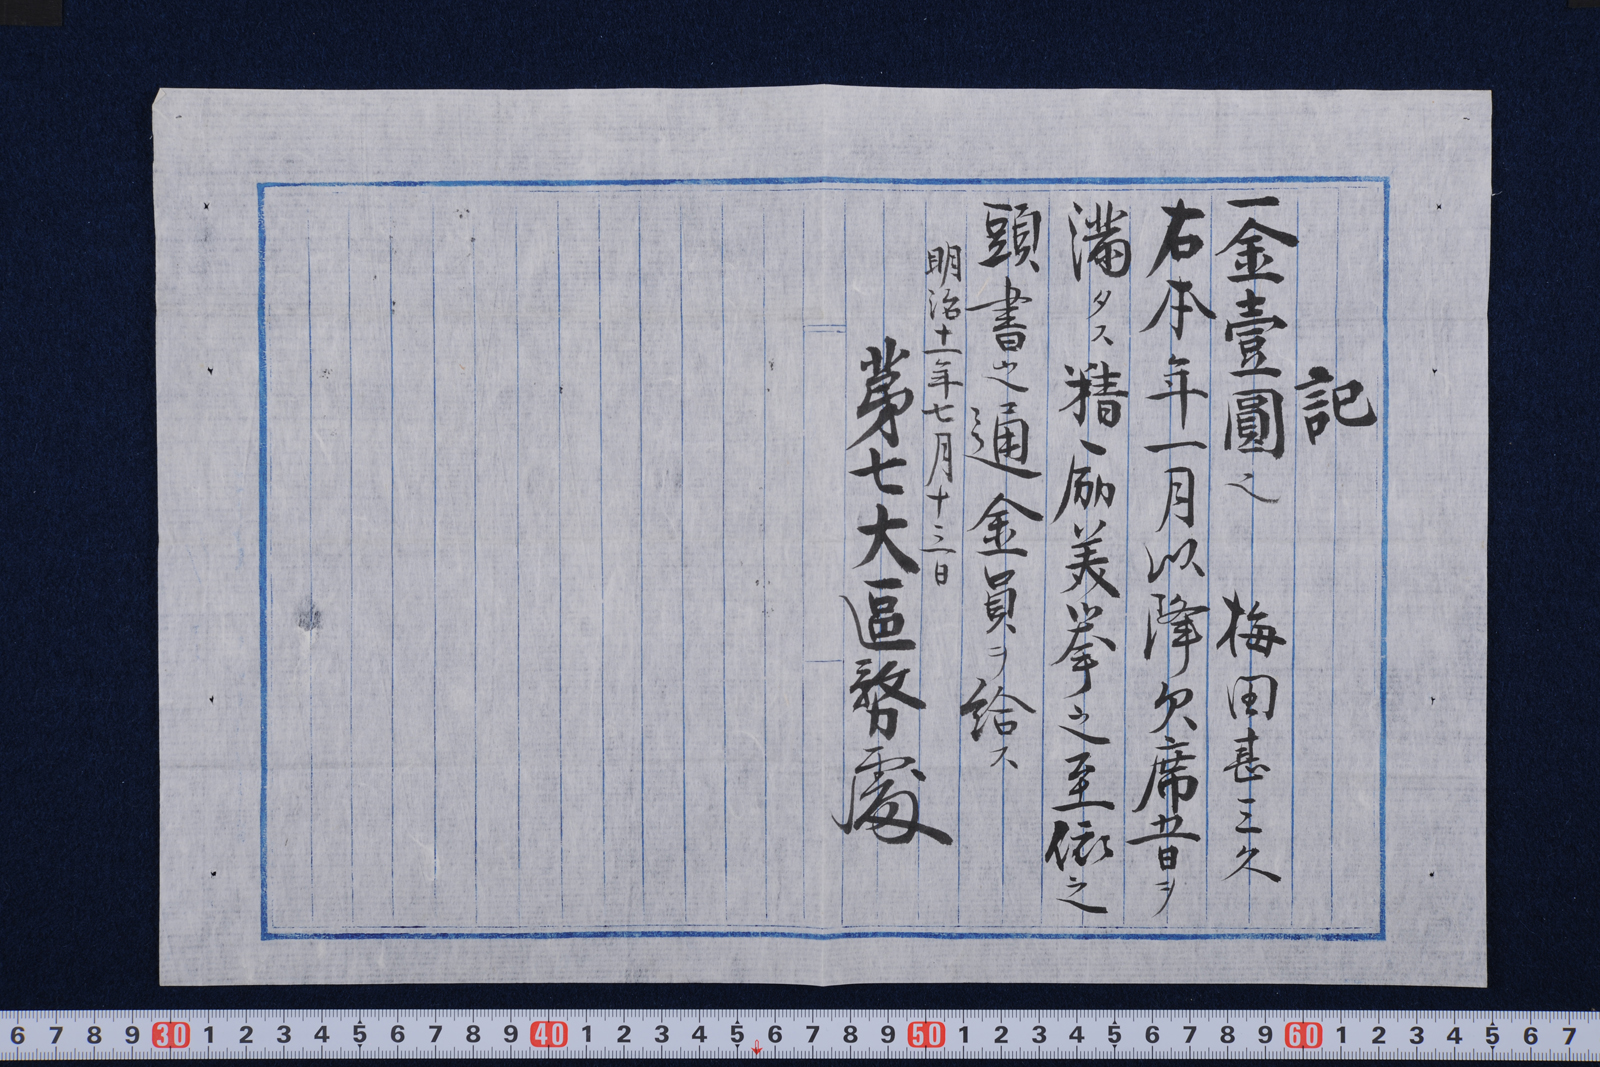 記
一金壹圓之 梅田甚三久
右本年一月以降欠席廿日ヲ
滿タス精ゝ励美挙之至依之
頭書之通金員ヲ給ス
明治十一年七月十三日
第七大區務處
6 7 8 9 30 1 2 3 4 5 6 7 8 9 40 1 2 3 4 5 6 7 8 9 50 1 2 3 4 5 6 7 8 9 60 1 2 3 4 5 6 7